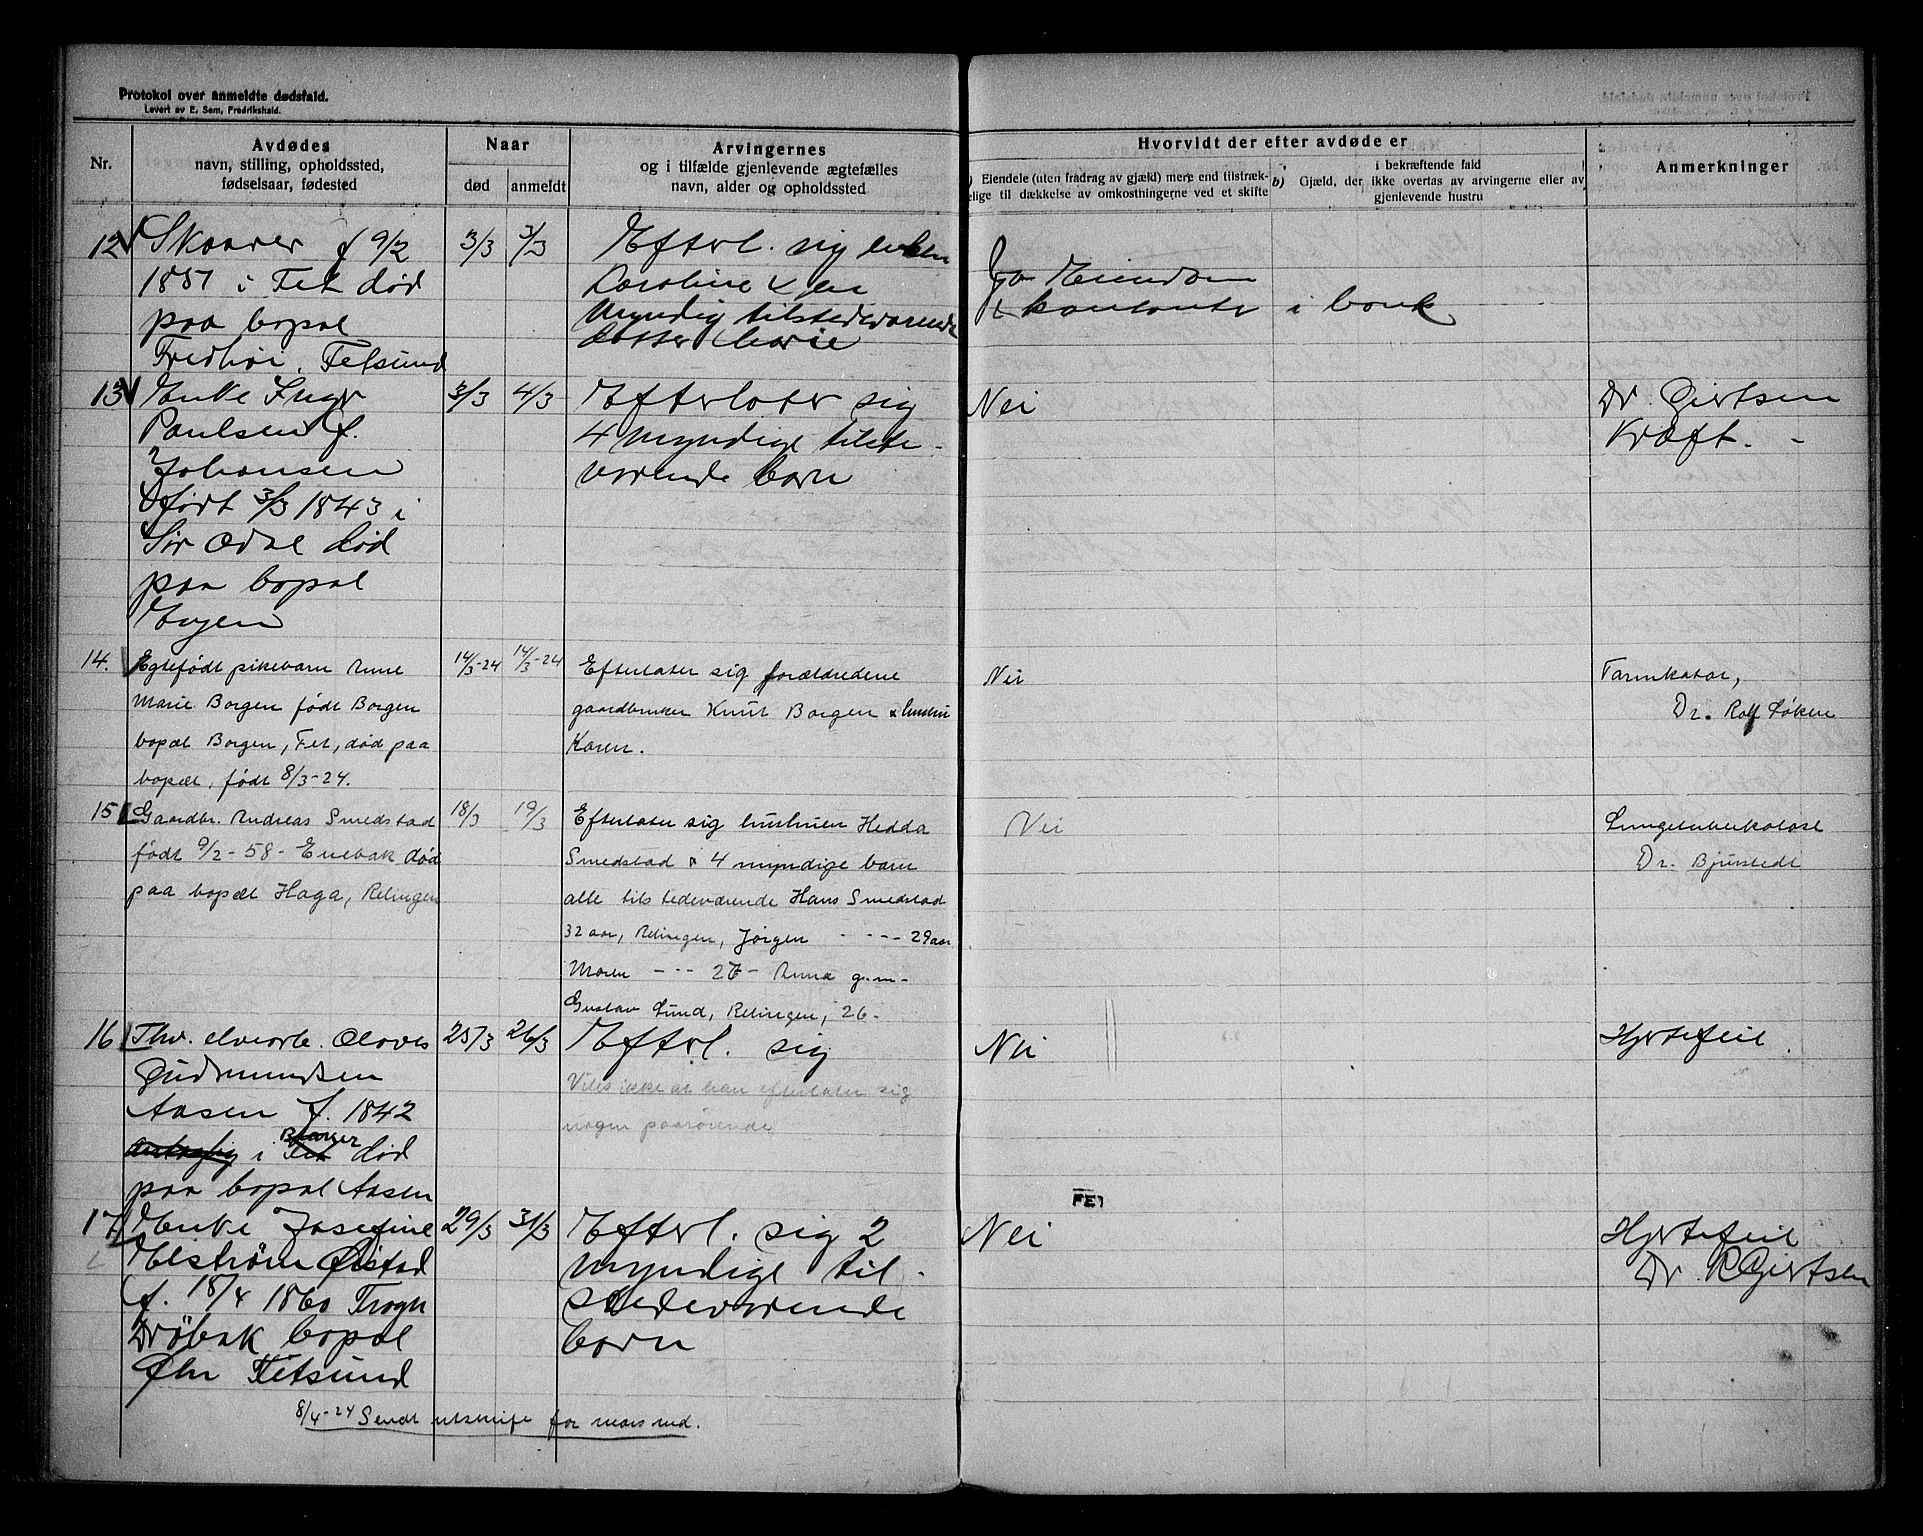 Protokol over anmeldte dødsfald.
Levert av E. Sem, Fredrikshald.
Nr.
Avdødes
navn, stilling, opholdssted,
fødselsaar, fødested
Naar
død
anmeldt
Arvingernes
og i tilfælde gjenlevende ægtefælles
navn, alder og opholdssted
Hvorvidt der efter avdøde er
Eiendele (uten fradrag av gjæld) mere end tilstræk-
elige til dækkelse av omkostningerne ved et skifte
b) Gjæld, der
i bekræftende fald
ikke overtas av arvingerne eller av
gjenlevende hustru
Anmerkninger
12 Skaarer f 9/2
1857 i Fet død
paa bopæl
Fredhøi, Fetsund
3/3
3/3
Efterl. sig enken
Caroline & en
myndig tilstedeværende
datter Marie
Ja Eiendom
& kontanter i bank
13 Enke Inger
Paulsen f.
Johansen
født 3/3 1843 i
Sør Odal død
paa bopæl
Engen
3/3
4/3
Efterlater sig
4 myndige tilste-
værende barn
Nei
Dr. Giertsen
Kræft. -
14. Egtefødt pikebarn Anne
Marie Borgen født Borgen
bopæl Borgen, Fet, død paa
bopæl, født 8/3-24.
14/3-24
14/3-24
Efterlater sig forældrene
gaardbruker Knut Borgen & hustru
Karen.
Nei
Tarmkatar,
Dr. Rolf Løken
15 Gaardbr. Andreas Smedstad
født 9/2-58- Enebak død
paa bopæl Haga, Rælingen
18/3
19/3
Efterlater sig hustruen Hedda
Smedstad & 4 myndige barn
alle tilstedeværende Hans Smedstad
32 aar, Rælingen, Jørgen - - - - 29 aar
Maren - - - 27 - Anna g.m-
Gustav Lund, Rælingen, 26-
Nei
Lungetuberkulose
Dr. Bjurstedt
16 Thv. elvearb. Olaves
Gudmundsen
Aasen f. 1842
antagelig i Fet Bærger død
paa bopæl Aasen
25/3
26/3
Efterl. sig
Vites ikke at han efterlater sig
nogen paarørende
Nei
Hjertefeil.
FET
17 Enke Josefine
Elstrøm Østad
f. 18/4 1860 Trogn
Drøbak bopæl
Fetsund
29/3
31/3
Efterl. sig 2
myndige til-
stedeværende
barn
Nei
Hjertefeil
Dr. R Giertsen
8/4-24 Sendt utskrift for mars md.